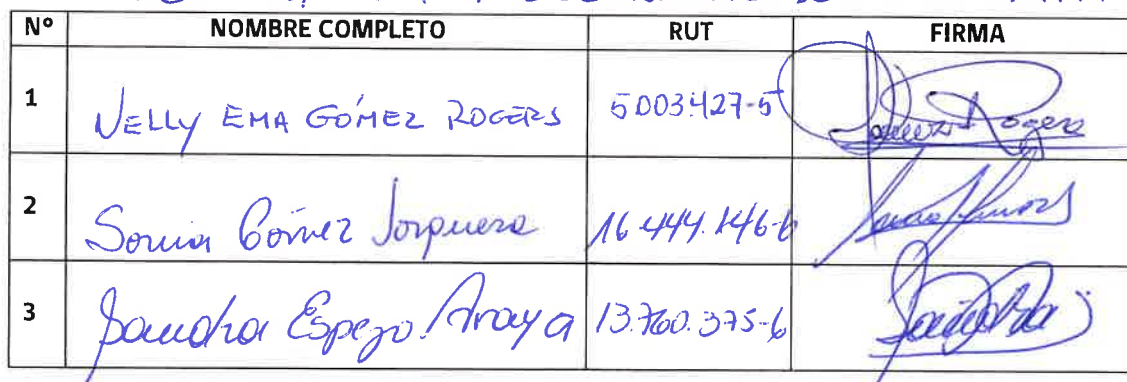 Nº NOMBRE COMPLETO RUT FIRMA
1 NELLY EMA GÓMEZ ROGERS 5.003.427-5 Gómez Rogers
2 Sonia Gómez Jorquera 16.444.146-6
3 Sandra Espejo Araya 13.760.375-6